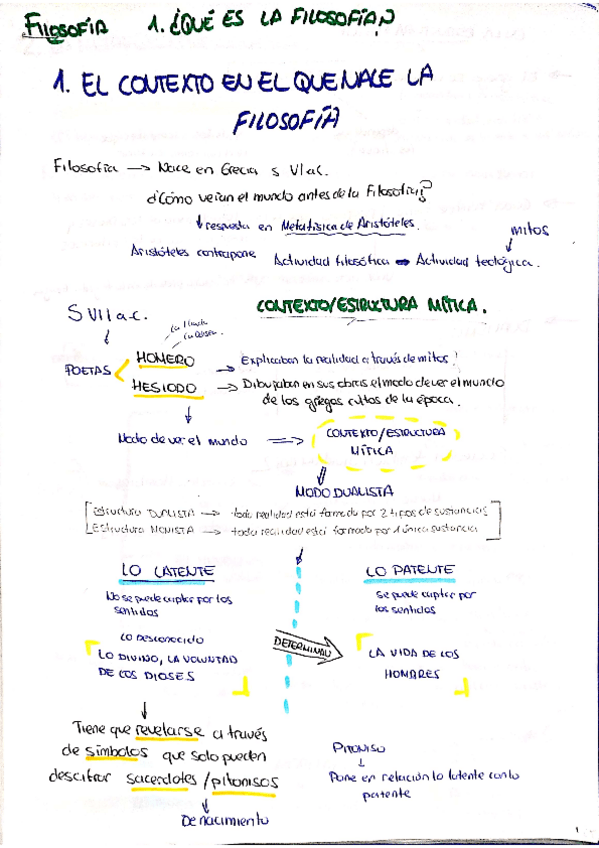 FILOSOFÍA 1. ¿QUÉ ES LA FILOSOFÍA?
1. EL CONTEXTO EN EL QUE NACE LA
FILOSOFÍA
Filosofía → Nace en Grecia s VI a.C.
¿Cómo veían el mundo antes de la Filosofía?
↓ respuesta en Metafísica de Aristóteles.
mitos
↓
Aristóteles contrapone Actividad filosófica ↔ Actividad teológica.
S VII a.C.
CONTEXTO/ESTRUCTURA MÍTICA.
↓
La Ilíada
La Odisea
POETAS
HOMERO → Explicaban la realidad a través de mitos!
HESIODO → Dibujaban en sus obras el modo de ver el mundo
de los griegos cultos de la época.
↓
Modo de ver el mundo ⇒ CONTEXTO/ESTRUCTURA
MÍTICA
⇓
MODO DUALISTA
Estructura DUALISTA → toda realidad está formada por 2 tipos de sustancias
Estructura MONISTA → toda realidad está formada por 1 única sustancia
↓
LO LATENTE LO PATENTE
No se puede captar por los
sentidos
Se puede captar por
los sentidos
Lo desconocido
LO DIVINO, LA VOLUNTAD
DE LOS DIOSES
DETERMINAN
LA VIDA DE LOS
HOMBRES
↓
Tiene que revelarse a través
de símbolos que solo pueden
descifrar sacerdotes/pitonisos
↓
De nacimiento
PITONISO
↓
Pone en relación lo latente con lo
patente
1